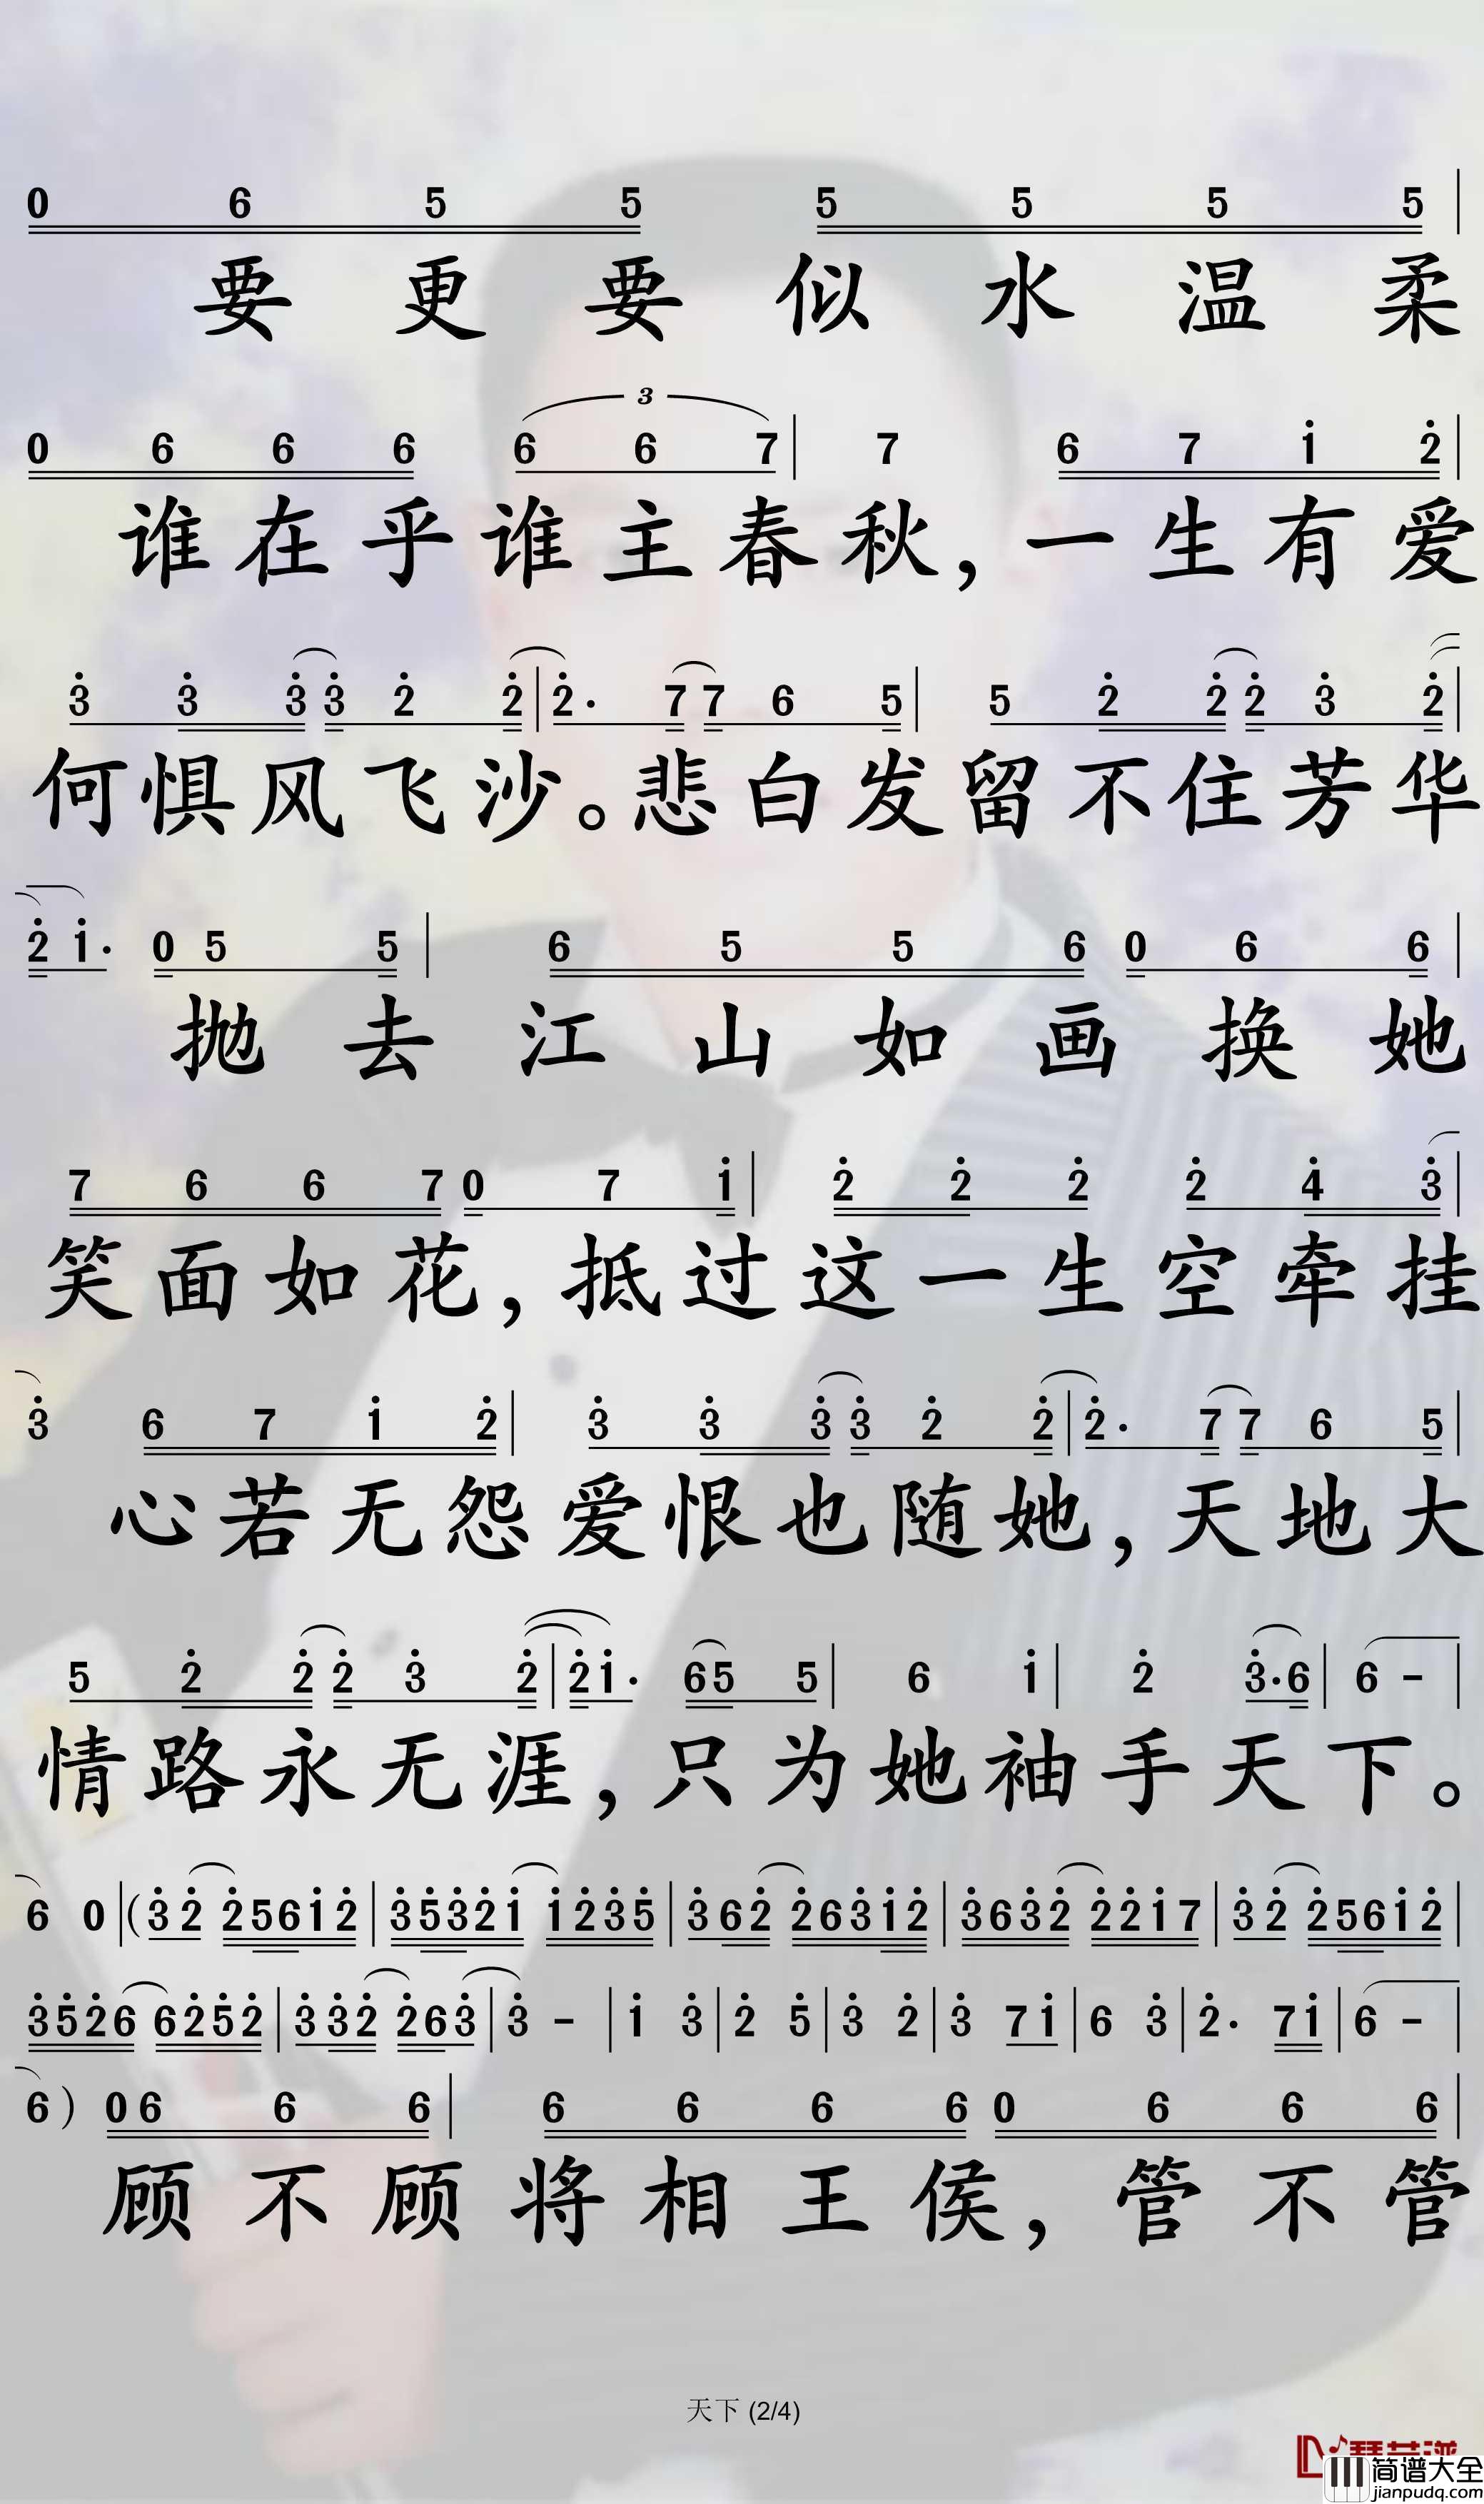 0 6 5 5 5 5 5 5 |
要更要似水温柔
3
0 6 6 6 6 6 7 | 7 6 7 i 2̇ |
谁在乎谁主春秋，一生有爱
3̇ 3̇ 3̇ 3̇ 2̇ 2̇ | 2̇· 7 7 6 5 | 5 2̇ 2̇ 2̇ 3̇ 2̇ |
何惧风飞沙。悲白发留不住芳华
2̇ i· 0 5 5 | 6 5 5 6 0 6 6 |
抛去江山如画换她
7 6 6 7 0 7 i | 2̇ 2̇ 2̇ 2̇ 4̇ 3̇ |
笑面如花，抵过这一生空牵挂
3̇ 6 7 i 2̇ | 3̇ 3̇ 3̇ 3̇ 2̇ 2̇ | 2̇· 7 7 6 5 |
心若无怨爱恨也随她，天地大
5 2̇ 2̇ 2̇ 3̇ 2̇ | 2̇ i· 6 5 5 | 6 i | 2̇ 3̇·6 | 6 - |
情路永无涯，只为她袖手天下。
6 0 |( 3̇ 2̇ 2̇ 5 6 i 2̇ | 3̇ 5̇ 3̇ 2̇ i i 2̇ 3̇ 5̇ | 3̇ 6 2̇ 2̇ 6 3̇ i 2̇ | 3̇ 6 3̇ 2̇ 2̇ 2̇ i 7 | 3̇ 2̇ 2̇ 5 6 i 2̇ |
3̇ 5̇ 2̇ 6 6 2̇ 5̇ 2̇ | 3̇ 3̇ 2̇ 2̇ 6 3̇ | 3̇ - | i 3̇ | 2̇ 5̇ | 3̇ 2̇ | 3̇ 7 i | 6 3̇ | 2̇· 7 i | 6 - |
6 ) 0 6 6 6 | 6 6 6 6 0 6 6 6 |
顾不顾将相王侯，管不管
天下 (2/4)
简谱大全
jianpudq.com